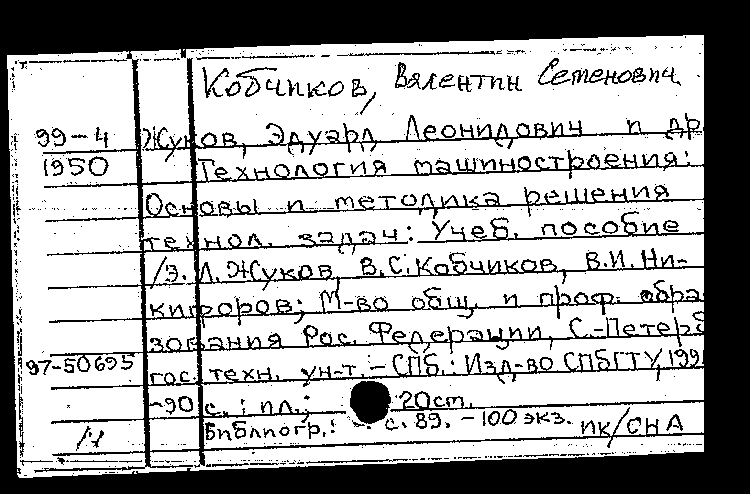 Кобчиков, Валентин Семенович
99-4 Жуков, Эдуард Леонидович и др
1950 Технология машиностроения:
Основы и методика решения
технол. задач: Учеб. пособие
/Э.Л.Жуков, В.С.Кобчиков, В.И.Ни-
кифоров; М-во общ. и проф. обра
зования Рос. Федерации, С.-Петерб
97-50695 гос. техн. ун-т.-СПб.: Изд-во СПбГТУ,199
-90 с.: ил.; 20см.
Библиогр.: с. 89. -100 экз. ПК/СНА